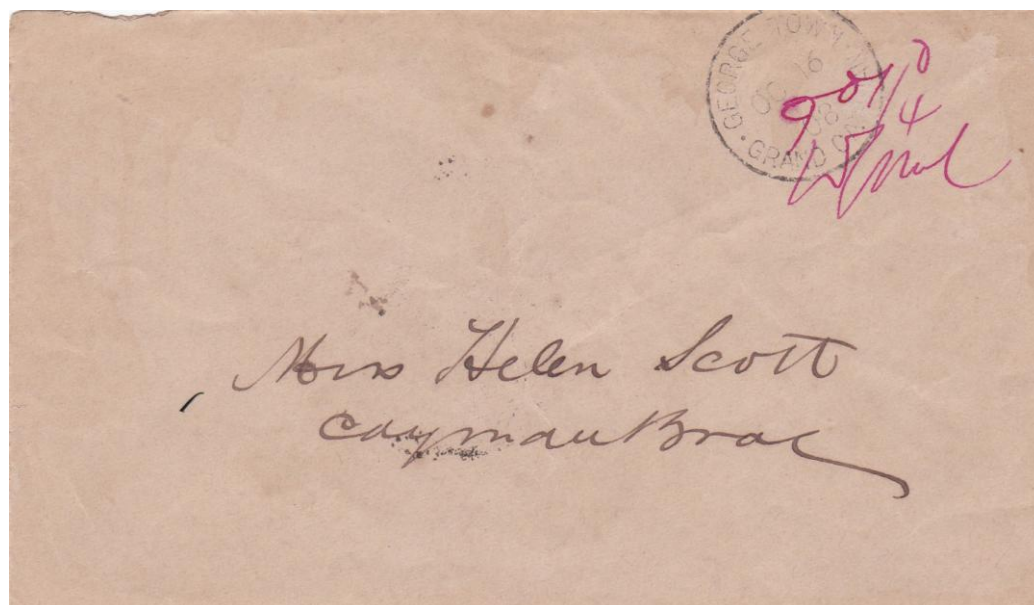 GEORGE TOWN
16
08
GRAND
1/4
Miss Helen Scott
Cayman Brac